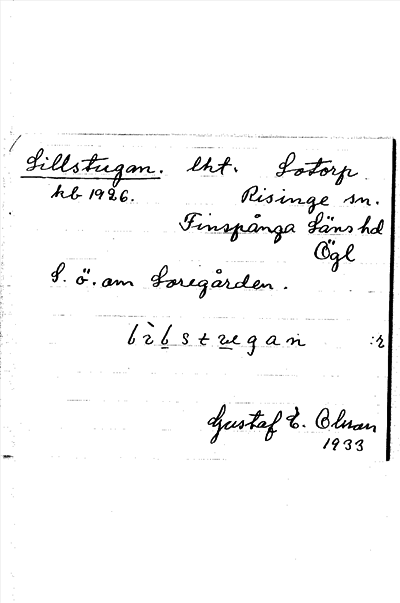 Lillstugan. lht. Lotorp.
kb 1926. Risinge sn.
Finspånga Läns hd
Ögl
L. ö. om Loregården.
:r
Gustaf E. Olsson
1933